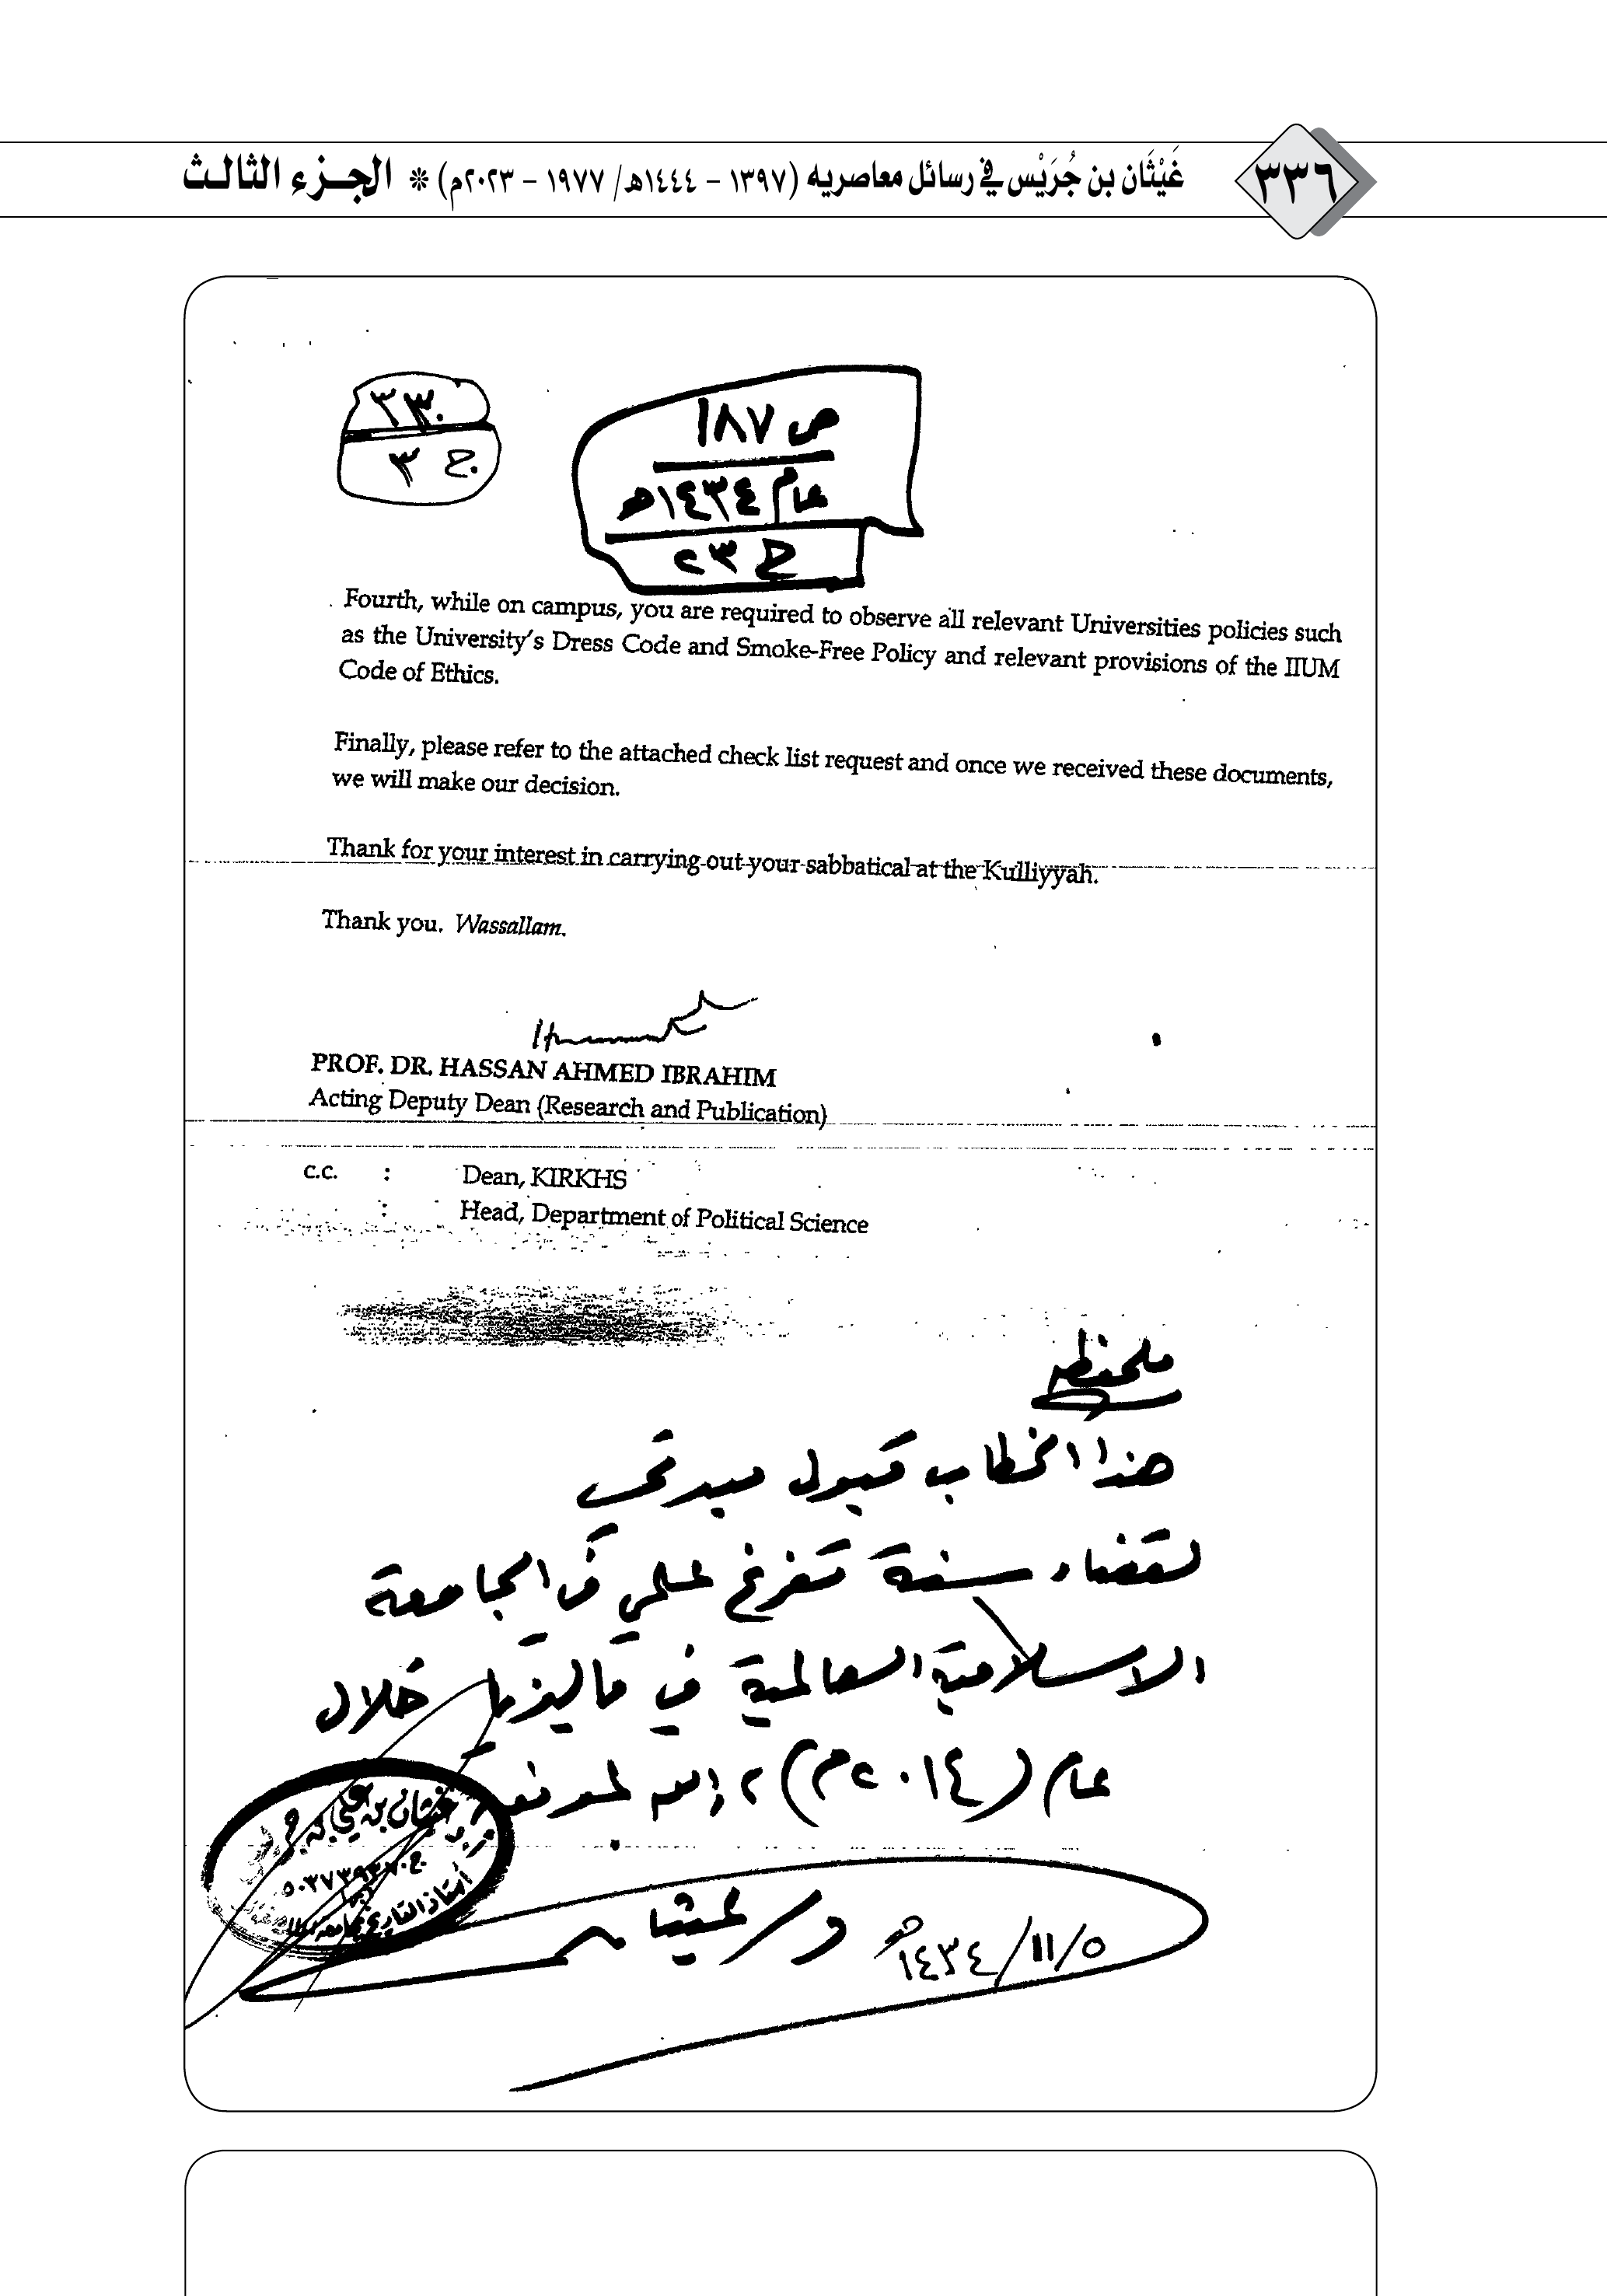 ٣٣٦
غَيْثَان بن جُرَيْس في رسائل معاصريه (١٣٩٧ - ١٤٤٤هـ/ ١٩٧٧ - ٢٠٢٣م) * الجزء الثالث
٣٣٠
ج ٣
ص ١٨٧
عام ١٤٣٤هـ
ج ٢٣
Fourth, while on campus, you are required to observe all relevant Universities policies such
as the University's Dress Code and Smoke-Free Policy and relevant provisions of the IIUM
Code of Ethics.
Finally, please refer to the attached check list request and once we received these documents,
we will make our decision.
Thank for your interest in carrying out your sabbatical at the Kulliyyah.
Thank you. Wassallam.
PROF. DR. HASSAN AHMED IBRAHIM
Acting Deputy Dean (Research and Publication)
c.c. : Dean, KIRKHS
: Head, Department of Political Science
ملحوظة
هذا الخطاب قبول مبدئي
لقضاء سنة تفرغ علمي في الجامعة
الاسلامية العالمية في ماليزيا خلال
عام (٢٠١٤م) والله الموفق
غيثان بن علي بن
أستاذ التاريخ بجامعة الملك
د/ غيثان ١٤٣٤/١١/٥هـ